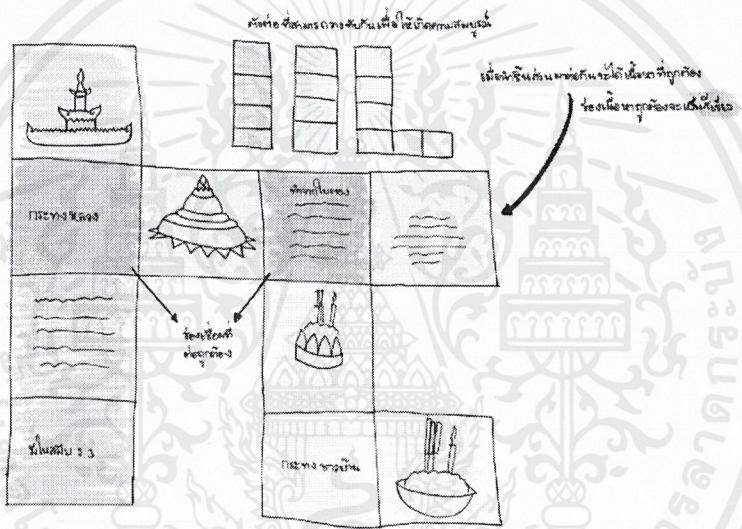 ตัวต่อที่สามารถวางทับกันเพื่อให้เกิดความสมบูรณ์
เมื่อนำชิ้นส่วนมาต่อกันจะได้เนื้อหาที่ถูกต้อง
ช่องเนื้อหาถูกต้องจะเป็นสีเขียว
กระทงหลวง
ทำจากใบตอง
ช่องเชื่อมที่
ต่อถูกต้อง
ในสมัย ร.3
กระทงชาวบ้าน
ลาดกระบัง